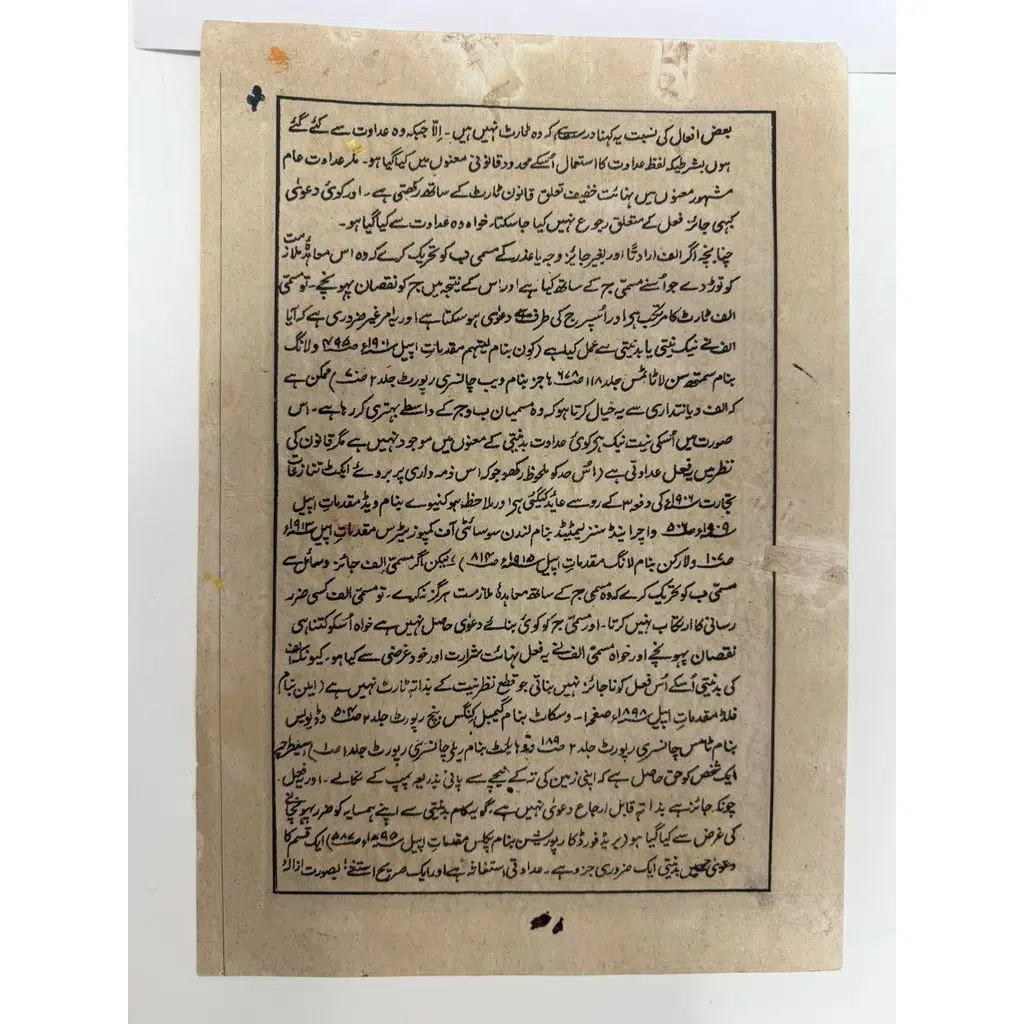 بعض افعال کی نسبت یہ کہنا درست ہے کہ وہ ٹارٹ نہیں ہیں۔ اِلّا جبکہ وہ عداوت سے کئے گئے
ہوں بشرطیکہ لفظ عداوت کا استعمال اُسکے محدود قانونی معنوں میں کیا گیا ہو۔ مگر عداوت عام
مشہور معنوں میں نہائت خفیف تعلق قانون ٹارٹ کے ساتھ رکھتی ہے۔ اور کوئی دعویٰ
کبہی جائز فعل کے متعلق رجوع نہیں کیا جاسکتا، خواہ وہ عداوت سے کیا گیا ہو۔
چنانچہ اگر الف ارادتًا اور بغیر جایز وجہ یا عذر کے مسمی ب کو تحریک کرے کہ وہ اس معاہدۂ ملازمت
کو توڑ دے جو اُسنے مسمّی ج کے ساتھ کیا ہے اور اس کے نتیجہ میں ج کو نقصان پہونچے۔ تو مسمّی
الف ٹارٹ کا مرتکب ہوا اور اُسپر ج کی طرف سے دعویٰ ہوسکتا ہے اور یہ امر غیر ضروری ہے کہ آیا
الف نے نیک نیتی یا بدنیتی سے عمل کیا ہے (کوئن بنام لیتہم مقدمات اپیل ۱۹۰۱ء صـ ۴۹۵ ولانگ
بنام سمتھ سن لاٹائمس جلد ۱۱۸ صـ ۶۷۸ ہاجز بنام ویب چانسری رپورٹ جلد ۲ صـ ۷) ممکن ہے
کہ الف دیانتداری سے یہ خیال کرتا ہو کہ وہ مسمیان ب و ج کے واسطے بہتری کررہا ہے۔ اس
صورت میں اُسکی نیت نیک ہی کوئی عداوت بدنیتی کے معنوں میں موجود نہیں ہے مگر قانون کی
نظر میں یہ فعل عداوتی ہے (اس حد کو ملحوظ رکھو جو کہ اس ذمہ داری پر بروئے ایکٹ تنازعات
تجارت ۱۹۰۶ء کی دفعہ ۳ کے روسے عاید کیگئی ہی اور ملاحظہ ہو کنیوے بنام ویڈ مقدمات اپیل
۱۹۰۹ء صـ ۵۰۶ واچر اینڈ سنز لیمیٹیڈ بنام لندن سوسائٹی آف کمپوزیٹرس مقدمات اپیل ۱۹۱۳ء
صـ ۱۰۷ ولارکن بنام لانگ مقدمات اپیل ۱۹۱۵ء صـ ۸۱۴) لیکن اگر مسمّی الف جائز وسائل سے
مسمّی ب کو تحریک کرے کہ وہ مسمی ج کے ساتھ معاہدۂ ملازمت ہرگز نہ کرے۔ تو مسمّی الف کسی ضرر
رسانی کا ارتکاب نہیں کرتا۔ اور مسمّی ج کو کوئی بنائے دعویٰ حاصل نہیں ہے خواہ اُسکو کتنا ہی
نقصان پہونچے اور خواہ مسمّی الف نے یہ فعل نہائت شرارت اور خود غرضی سے کیا ہو۔ کیونکہ الف
کی بدنیتی اُسکے اُس فعل کو ناجائز نہیں بناتی جو قطع نظر نیت کے بذاتہٖ ٹارٹ نہیں ہے (ایلن بنام
فلڈ مقدمات اپیل ۱۸۹۸ء صفحہ ۱۔ وسکاٹ بنام گیمبل کنگس بنچ رپورٹ جلد ۲ صـ ۵۰۴ وڈیویس
بنام ٹامس چانسری رپورٹ جلد ۲ صـ ۱۸۹ بنام ریلی چانسری رپورٹ جلد ۱ صـ ۱) اسیطرحپر
ایک شخص کو حق حاصل ہے کہ اپنی زمین کی تہ کے نیچے سے پانی بذریعہ پمپ کے نکالے۔ اور یہ فعل
چونکہ جائز ہے بذاتہٖ قابل ارجاع دعویٰ نہیں ہے، گو یہ کام بدنیتی سے اپنے ہمسایہ کو ضرر پہونچانے
کی غرض سے کیا گیا ہو (بریڈفورڈ کارپوریشن بنام پکلس مقدمات اپیل ۱۸۹۵ء صـ ۵۸۷) ایک قسم کا
دعویٰ جسمیں بدنیتی ایک ضروری جزو ہے۔ عداوتی استغاثہ ہے اور ایک صریح استثنےٰ بصورت ازالۂ